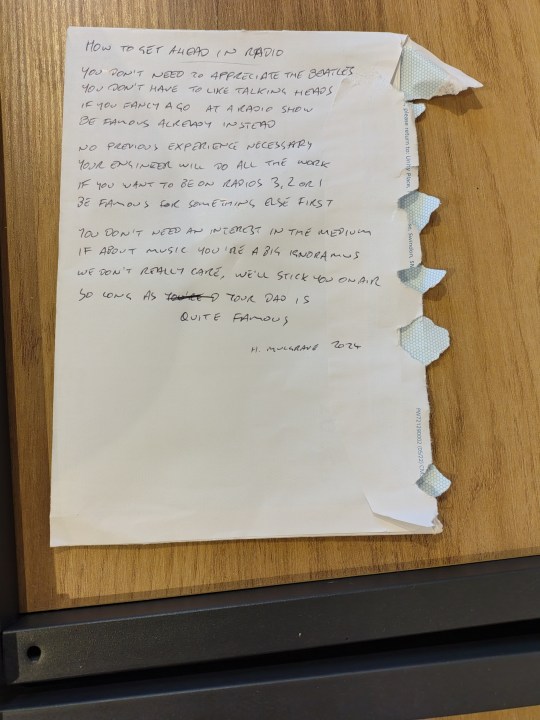 HOW TO GET AHEAD IN RADIO
YOU DON'T NEED TO APPRECIATE THE BEATLES
YOU DON'T HAVE TO LIKE TALKING HEADS
IF YOU FANCY A GO AT A RADIO SHOW
BE FAMOUS ALREADY INSTEAD
NO PREVIOUS EXPERIENCE NECESSARY
YOUR ENGINEER WILL DO ALL THE WORK
IF YOU WANT TO BE ON RADIOS 3, 2 OR 1
BE FAMOUS FOR SOMETHING ELSE FIRST
YOU DON'T NEED AN INTEREST IN THE MEDIUM
IF ABOUT MUSIC YOU'RE A BIG IGNORAMUS
WE DON'T REALLY CARE, WE'LL STICK YOU ON AIR
SO LONG AS YOU'RE D YOUR DAD IS
QUITE FAMOUS
H. MULGRAVE 2024
please return to: Unity Place,